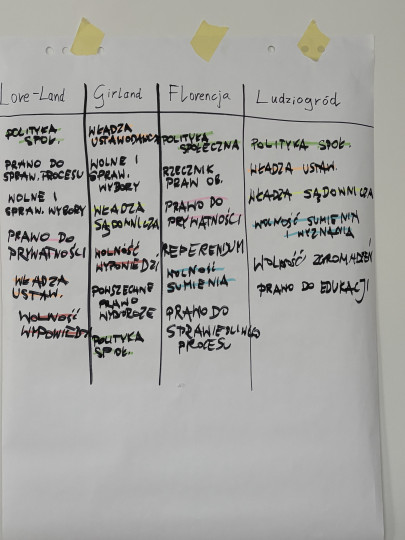 Love-Land
POLITYKA
SPOŁ.
PRAWO DO
SPRAW. PROCESU
WOLNE I
SPRAW. WYBORY
PRAWO DO
PRYWATNOŚCI
WŁADZA
USTAW.
WOLNOŚĆ
WYPOWIEDZI
Girland
WŁADZA
USTAWODAWCZA
WOLNE I
SPRAW.
WYBORY
WŁADZA
SĄDOWNICZA
WOLNOŚĆ
WYPOWIEDZI
POWSZECHNE
PRAWO
WYBORCZE
POLITYKA
SPOŁ.
Florencja
POLITYKA
SPOŁECZNA
RZECZNIK
PRAW OB.
PRAWO DO
PRYWATNOŚCI
REFERENDUM
WOLNOŚĆ
SUMIENIA
PRAWO DO
SPRAWIEDLIWEGO
PROCESU
Ludziogród
POLITYKA SPOŁ.
WŁADZA USTAW.
WŁADZA SĄDOWNICZA
WOLNOŚĆ SUMIENIA
I WYZNANIA
WOLNOŚĆ ZGROMADZEŃ
PRAWO DO EDUKACJI